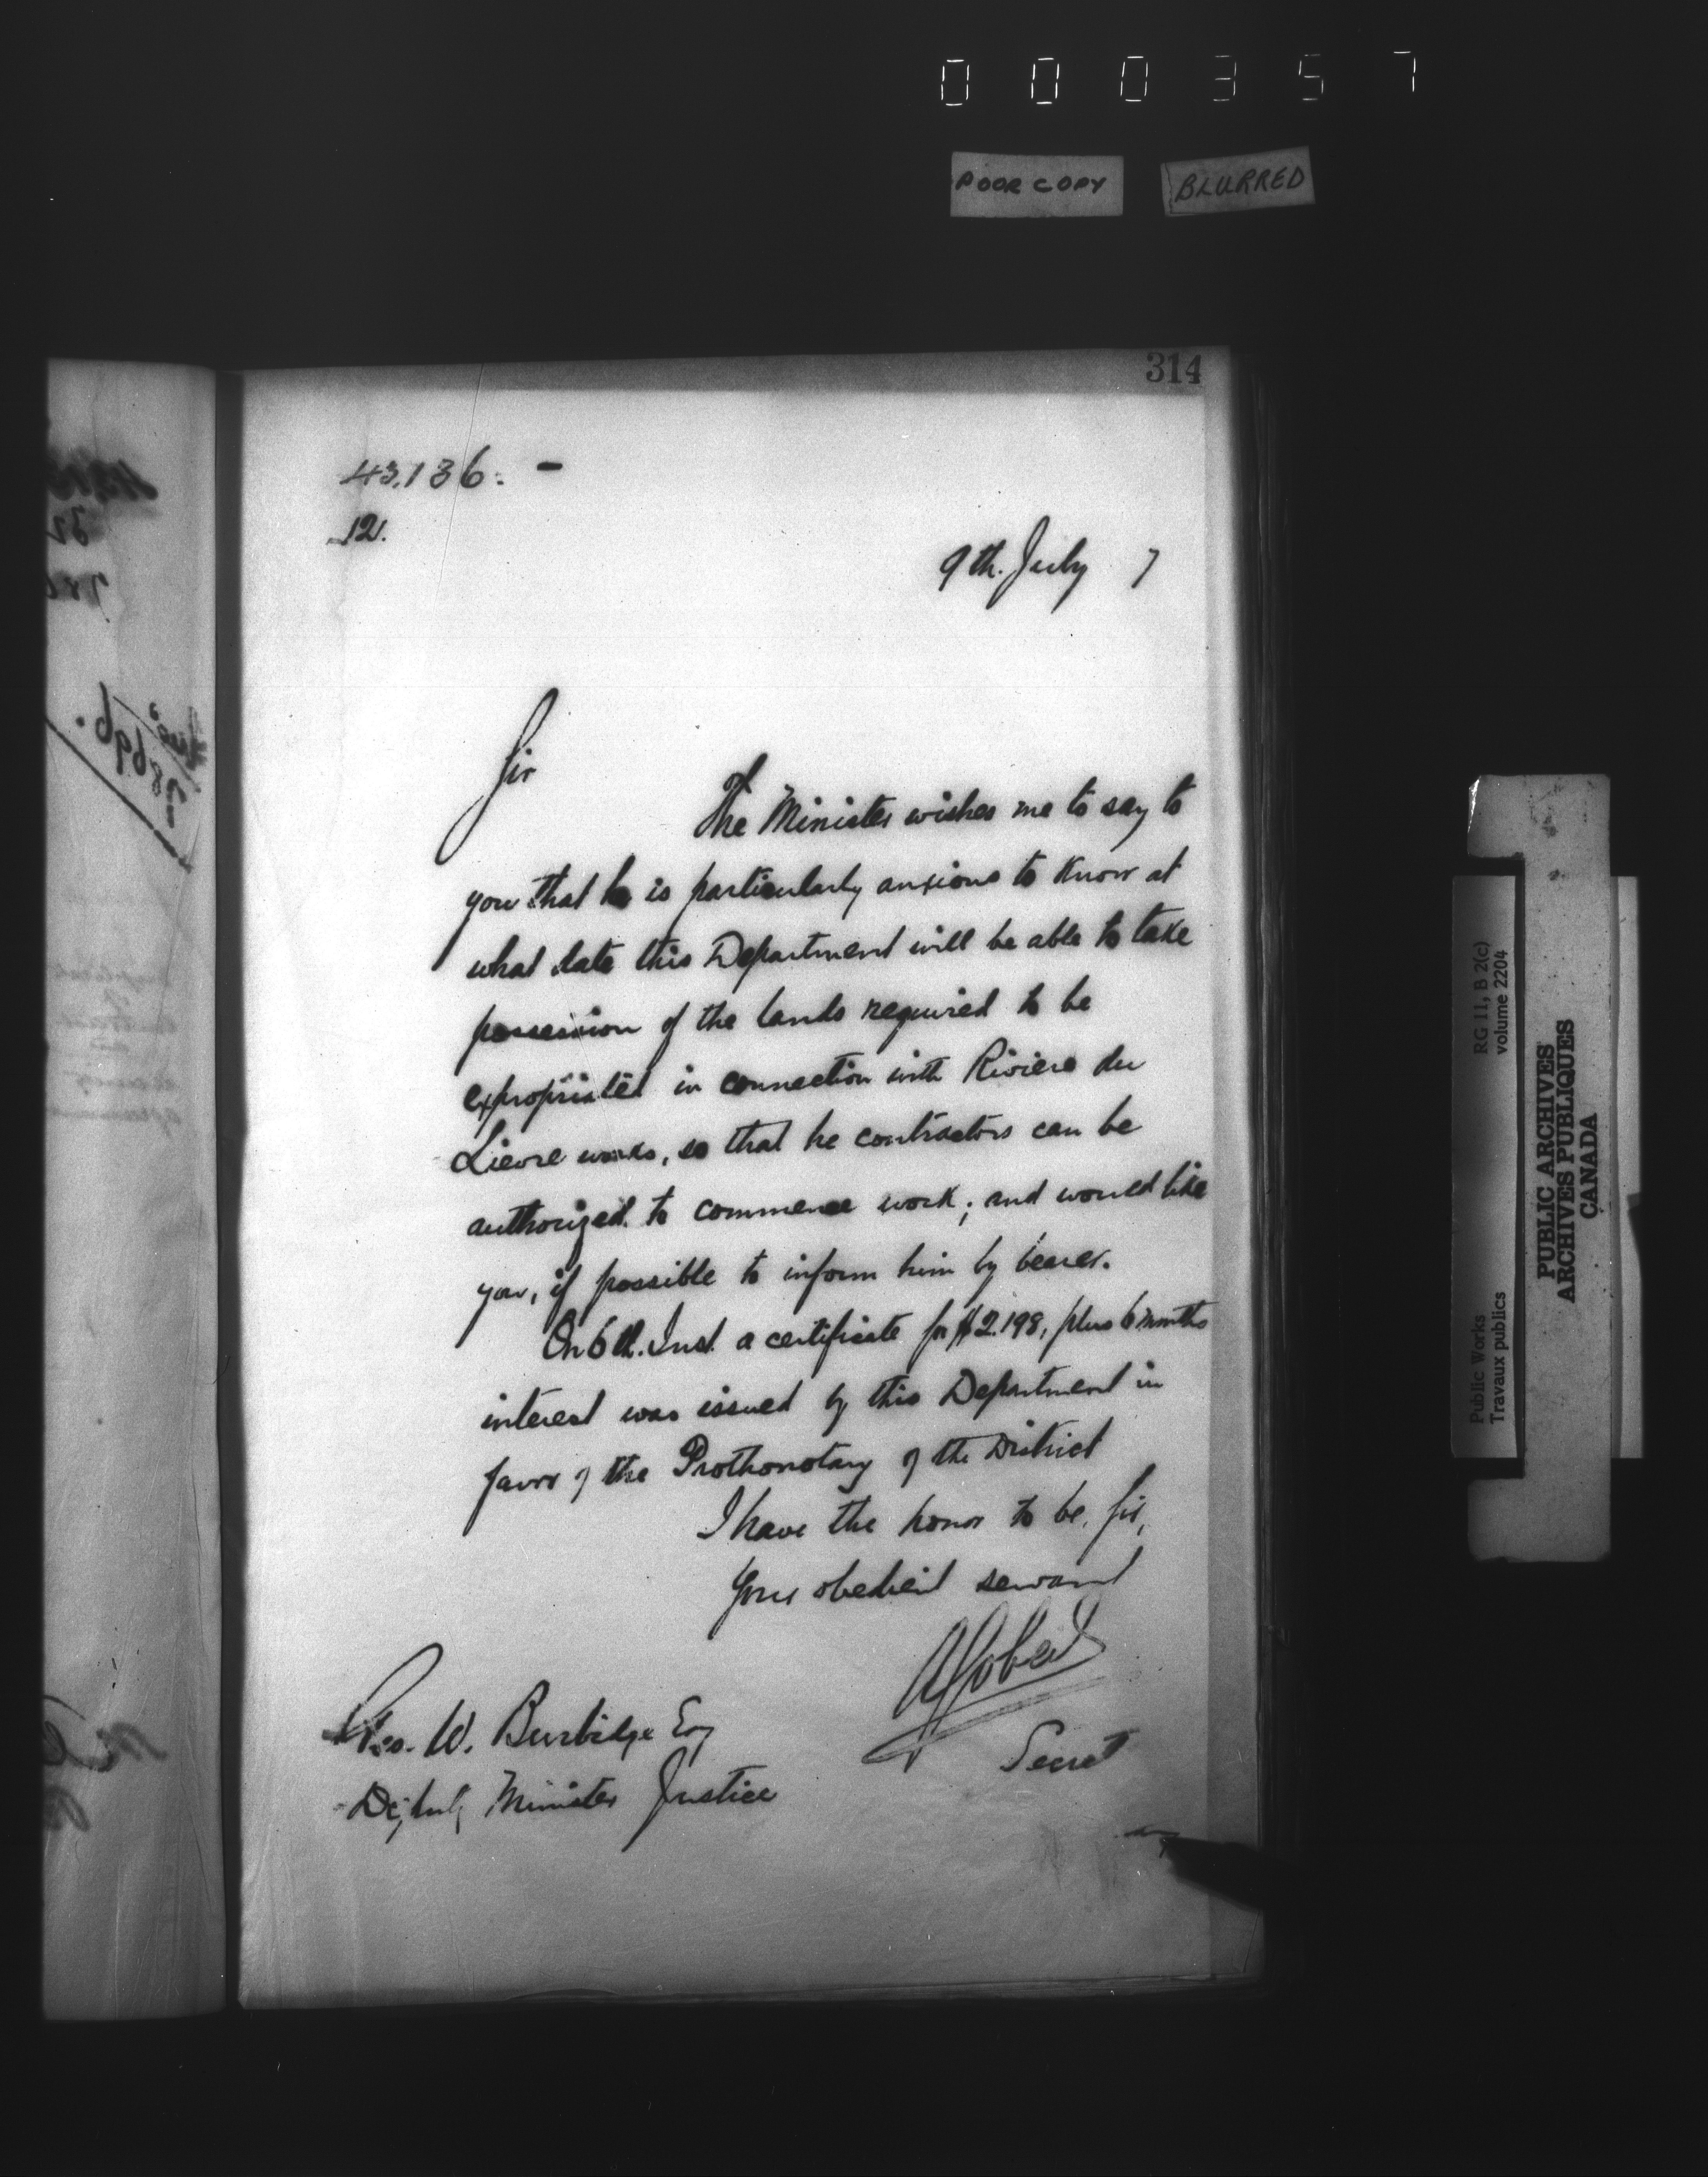 000357
POOR COPY
BLURRED
314
43.136. -
12.
9th. July 7
Sir
The Minister wishes me to say to
you that he is particularly anxious to know at
what date this Department will be able to take
possession of the lands required to be
expropriated in connection with Riviere du
Lievre works, so that he contractors can be
authorized to commence work; and would like
you, if possible to inform him by bearer.
On 6th. Inst. a certificate for $2.198, plus 6 months
interest was issued by this Department in
favor of the Prothonotary of the District
I have the honor to be, Sir,
Your obedient servant
A Gobeil
Secret
Geo. W. Burbidge Esq
Deputy Minister Justice
Public Works
Travaux publics
RG 11, B 2(c)
volume 2204
PUBLIC ARCHIVES
ARCHIVES PUBLIQUES
CANADA